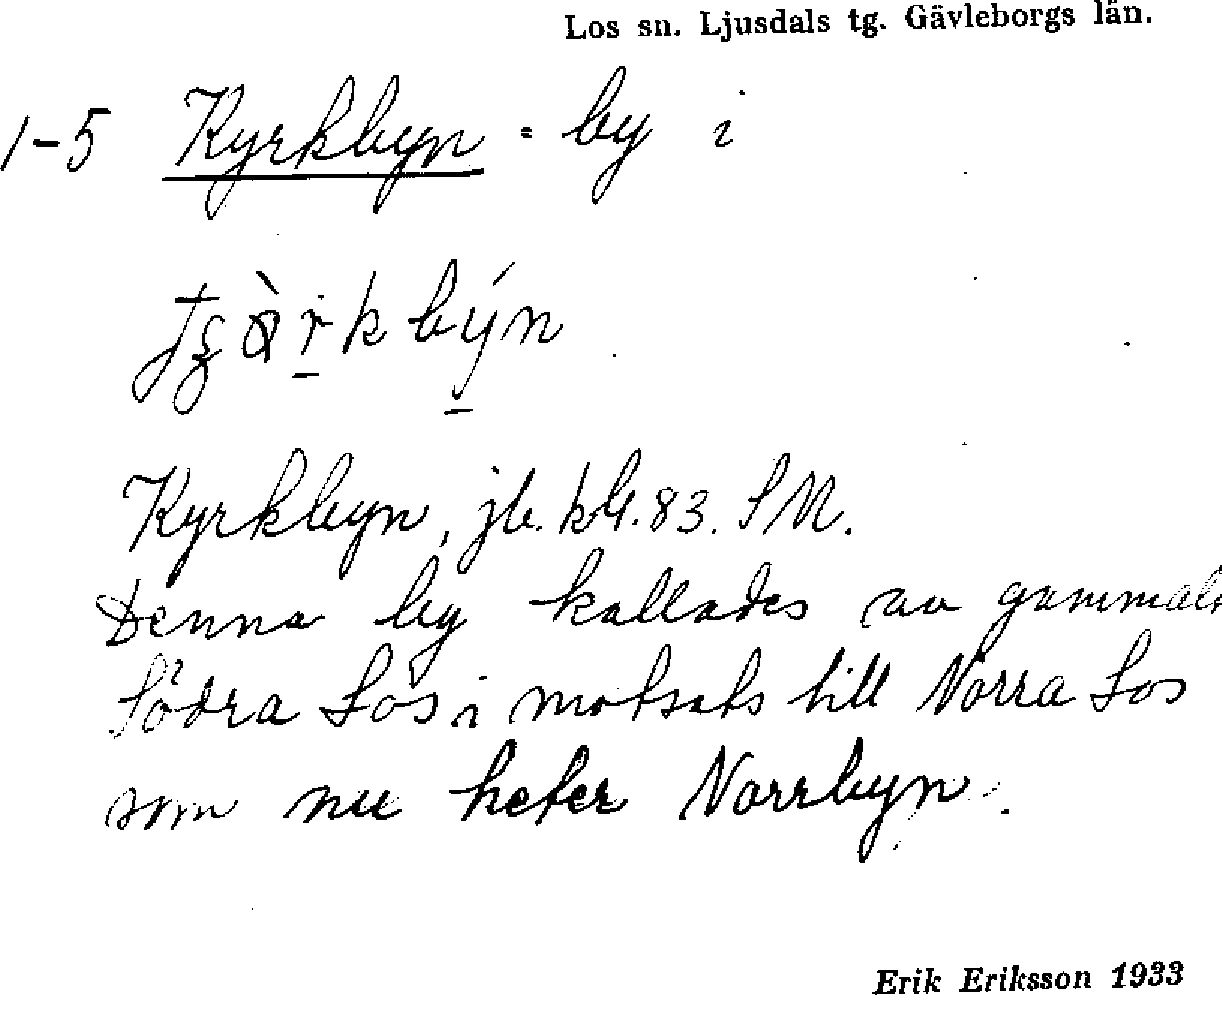 Los sn. Ljusdals tg. Gävleborgs län.
1-5 Kyrkbyn = by i
kbýn
Kyrkbyn, jb. 83. SM.
Denna by kallades av gammalt
Södra Los i motsats till Norra Los
som nu heter Norrbyn.
Erik Eriksson 1933